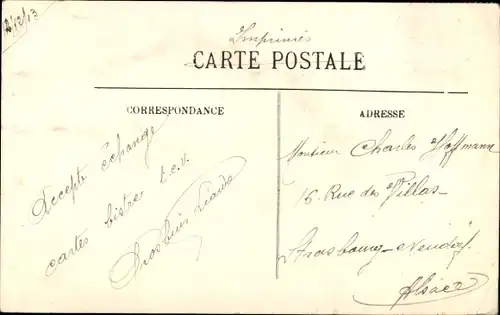 2/12/13
Imprimés
CARTE POSTALE
CORRESPONDANCE
Accepte échange
cartes bistre t.c.v.
ADRESSE
Monsieur Charles Hoffmann
16 Rue des Villas
Strasbourg-Neudorf
Alsace